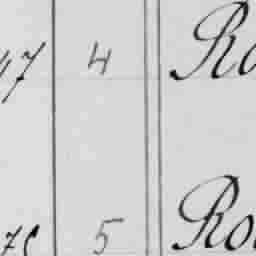 47 4 Ro
75 5 Ro